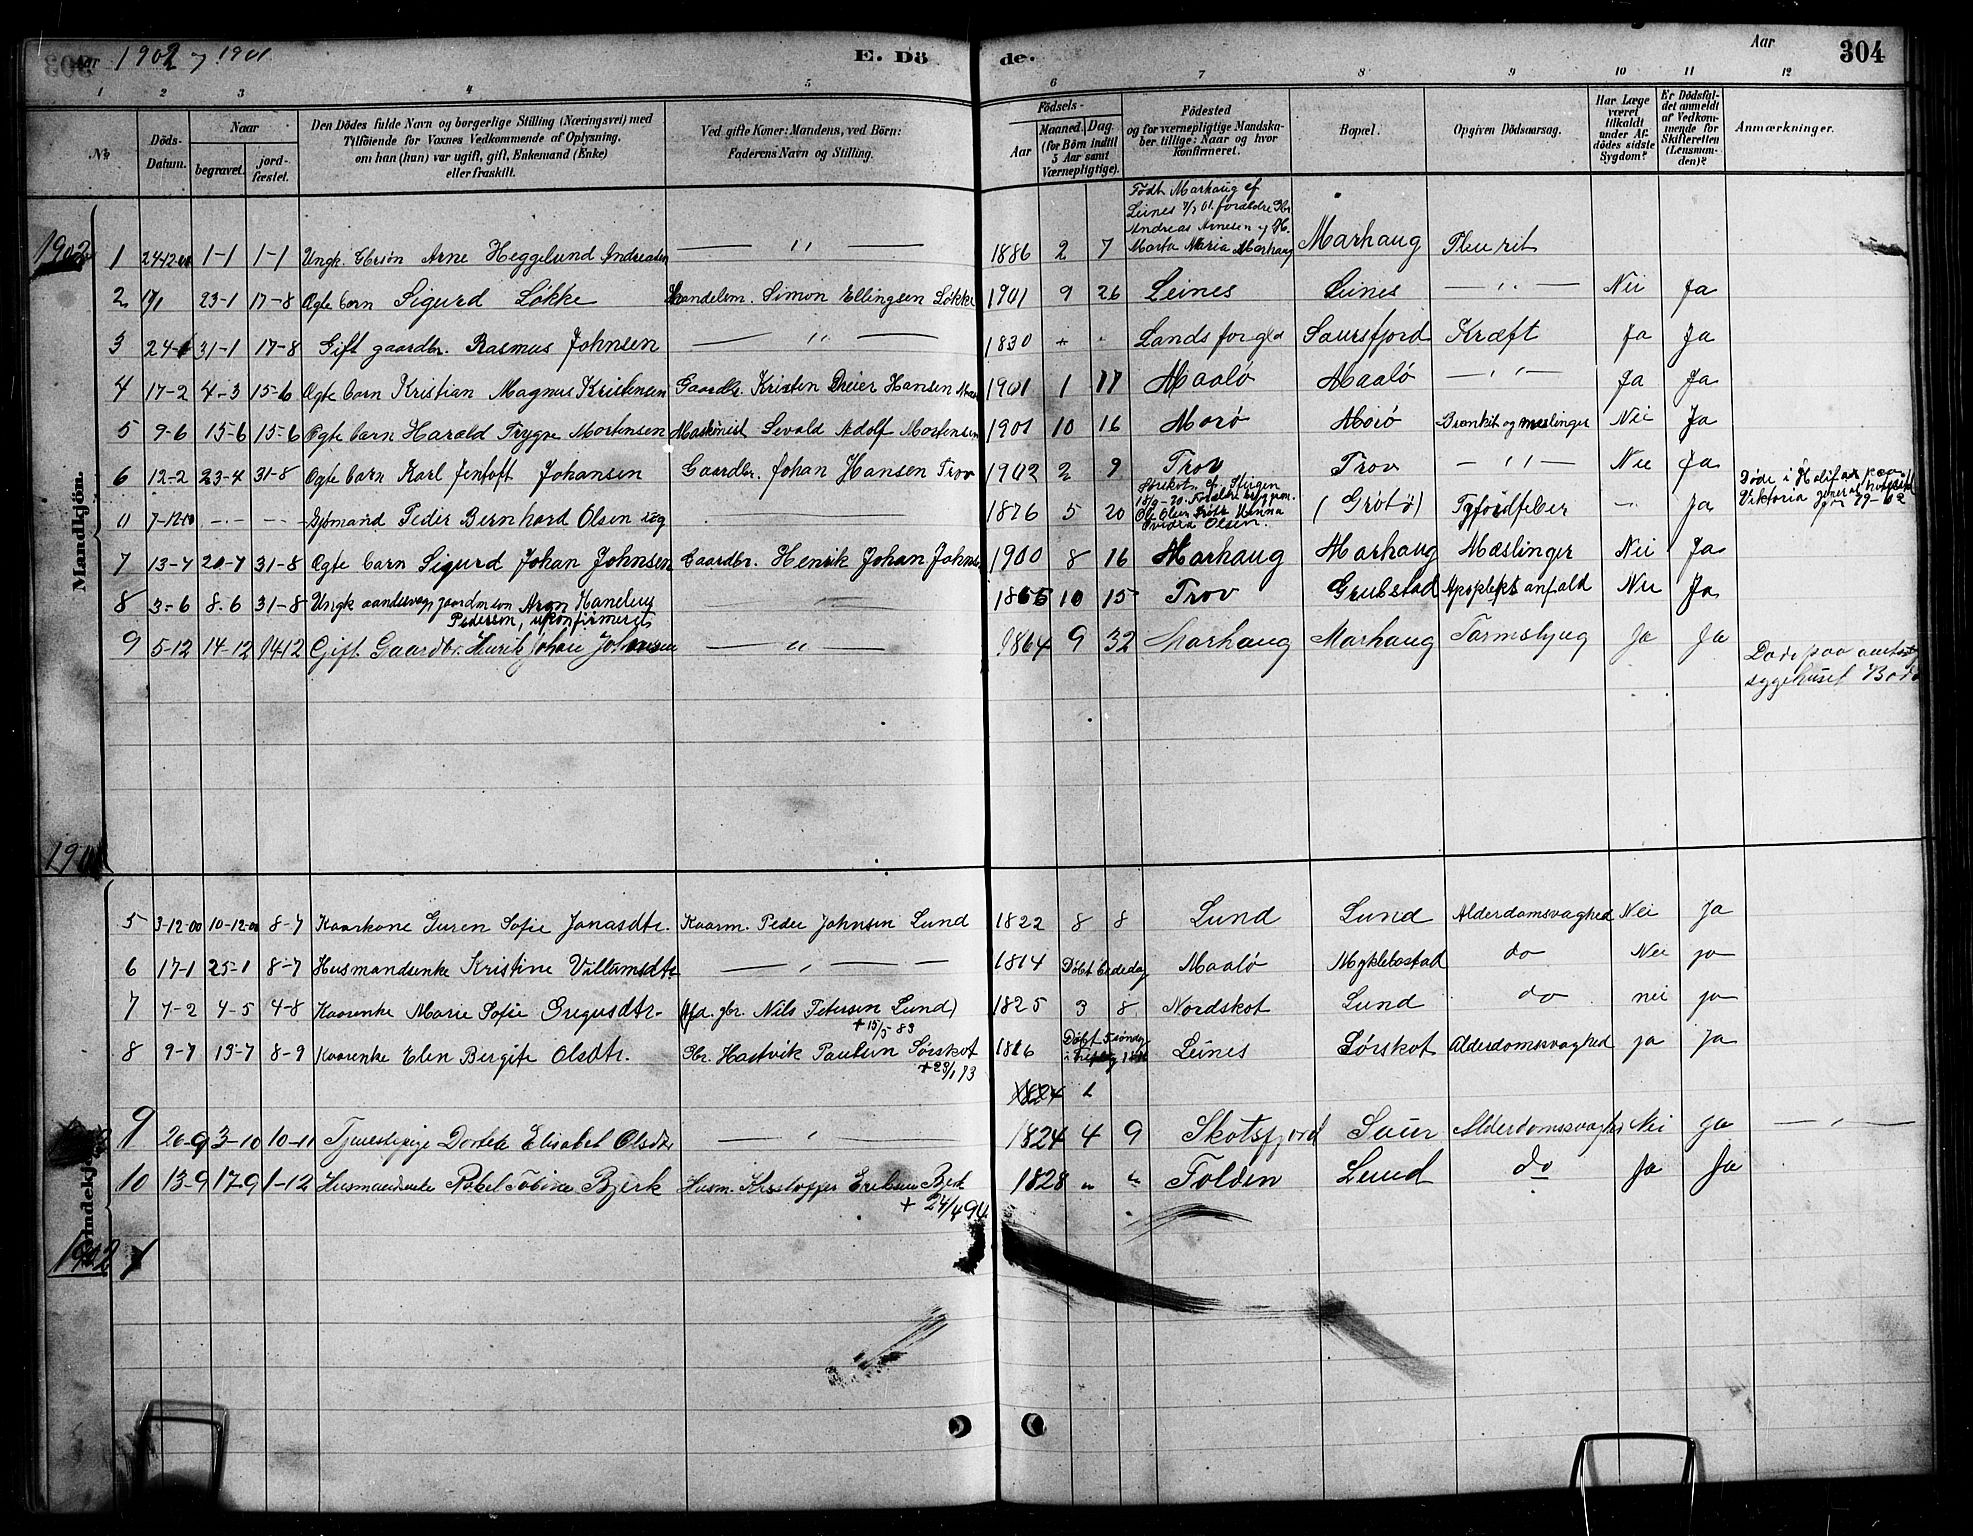 Aar 1902 og 1901 E. Dö de. Aar 304
1 2 3 4 5 6 7 8 9 10 11 12
No
Döds-Datum.
Naar
begravet.
jord-fæstet.
Den Dödes fulde Navn og borgerlige Stilling (Næringsvei) med
Tilföiende for Voxnes Vedkommende af Oplysning,
om han (hun) var ugift, gift, Enkemand (Enke)
eller fraskilt.
Ved gifte Koner: Mandens, ved Börn:
Faderens Navn og Stilling.
Födsels-
Aar
Maaned. Dag.
(for Börn indtil
5 Aar samt
Værnepligtige).
Födested
og for værnepligtige Mandska-
ber tillige: Naar og hvor
konfirmeret.
Bopæl.
Opgiven Dödsaarsag.
Har Læge
været
tilkaldt
under Af-
dödes sidste
Sygdom?
Er Dödsfal-
det anmeldt
af Vedkom-
mende for
Skifteretten
(Lensman-
den)?
Anmærkninger.
Mandkjön.
1902
Födt Marhaug cf
Leines 7/7 01. forældre Gbr
Andreas Arnesen og H.
Marta Maria Marhaug
1 1-1 1-1 Ungk. Gbrsön Arne Heggelund Andreasen — " — 1886 2 7 Marhaug Pleurit
2 17/1 23-1 17-8 Ægte barn Sigurd Løkke Handelsm. Simon Ellingsen Løkke 1901 9 26 Leines Leines — " — Nei Ja
3 24-1 31-1 17-8 Gift gaardbr. Rasmus Johnsen — " — 1830 Saursfjord Kræft Ja Ja
4 17-2 4-3 15-6 Ægte barn Kristian Magnus Kristensen Gaardbr. Kristen Dreier Hansen 1901 1 17 Maalø Maalø — " — Ja Ja
5 9-6 15-6 15-6 Ægte barn Harald Trygve Mortensen Maskinist Sevald Adolf Mortensen 1901 10 16 Morø Morø Bronkit og meslinger Nei Ja
6 12-2 23-4 31-8 Ægte barn Karl Jentoft Johansen Gaardbr. Johan Hansen Trov 1902 2 9 Trov Trov — " — Nei Ja
0 Sjømand Peder Bernhard Olsen ug — 1876 5 20 (Grøtø) Tyfoidfeber — Ja
Døde i Halifax paa
Viktoria general hospital
7 13-7 20-7 31-8 Ægte barn Sigurd Johan Johnsen Gaardbr. Henrik Johan Johnsen 1900 8 16 Marhaug Marhaug Mæslinger Nei Ja
8 3-6 8-6 31-8 Ungk aandssvag gaardmson Aron Haneberg
Pedersen, ukonfirmeret 1865 10 15 Trov Grubstad Apoplekt. anfald Nei Ja
9 5-12 14-12 14-12 Gift Gaardbr. Henrik Johan Johnsen — " — 1864 9 32 Marhaug Marhaug Tarmslyng Ja Ja
Døde paa amts
sygehuset Bodø
1901
5 3-12-00 10-12-00 8-7 Kaarkone Guren Sofie Jonasdtr. Kaarm. Peder Johnsen Lund 1822 8 8 Lund Lund Alderdomsvaghed Nei Ja
6 17-1 25-1 8-7 Husmandsenke Kristine Villumsdtr — " — 1814 Døbt Bededag Maalø Myklebostad do Nei ja
7 7-2 4-5 4-8 Kaarenke Marie Sofie Gregusdtr. (Afd. gbr. Nils Petersen Lund) 1825 3 8 Nordskot Lund do nei ja
+ 15/5 83
8 9-7 13-7 8-9 Kaarenke Elen Bergite Olsdtr. Gbr. Hartvik Paulsen Sørskot 1816 Døbt 5 søndag Leines Sørskot Alderdomssvaghed ja Ja
1824 1
9 26-9 3-10 10-11 Tjenestepige Dortea Elisabet Olsdtr — " — 1824 4 9 Skotsfjord Saur Alderdomssvaghed Nei ja — " —
10 13-9 17-9 1-12 Husmandsenke Bjerk Husm. Kristoffer Eriksen Bjerk 1828 " " Folden Lund do Ja Ja
+ 24/4 94
Kvindekjön.
1902 1